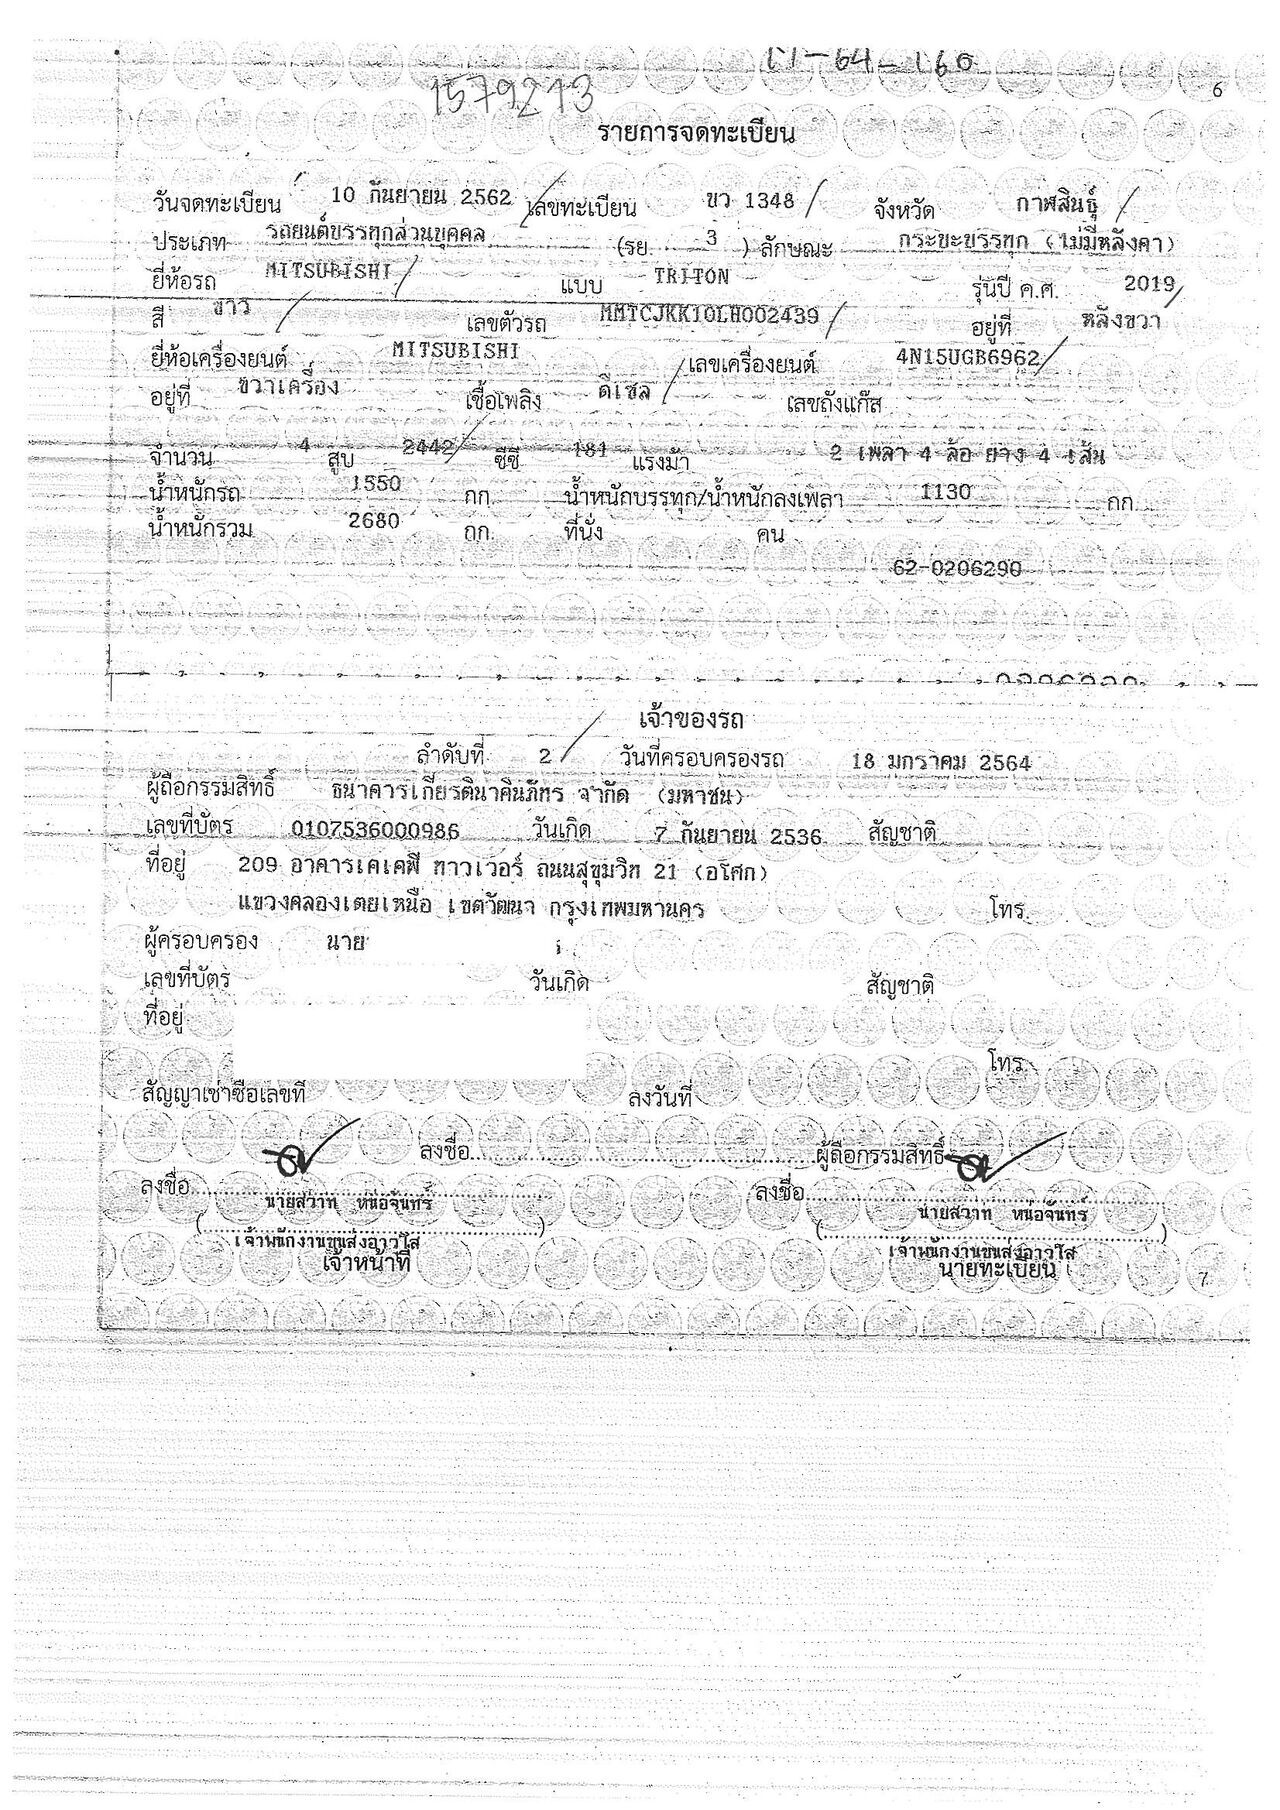 1579213
6
รายการจดทะเบียน
วันจดทะเบียน 10 กันยายน 2562 เลขทะเบียน ขว 1348 จังหวัด กาฬสินธุ์
ประเภท รถยนต์บรรทุกส่วนบุคคล (รย. 3 ) ลักษณะ กระบะบรรทุก (ไม่มีหลังคา)
ยี่ห้อรถ MITSUBISHI แบบ TRITON รุ่นปี ค.ศ. 2019
สี ขาว เลขตัวรถ MMTCJKK10LH002439 อยู่ที่ หลังขวา
ยี่ห้อเครื่องยนต์ MITSUBISHI เลขเครื่องยนต์ 4N15UGB6962
อยู่ที่ ขวาเครื่อง เชื้อเพลิง ดีเซล เลขถังแก๊ส
จำนวน 4 สูบ 2442 ซีซี 181 แรงม้า 2 เพลา 4 ล้อ ยาง 4 เส้น
น้ำหนักรถ 1550 กก น้ำหนักบรรทุก/น้ำหนักลงเพลา 1130 กก.
น้ำหนักรวม 2680 กก. ที่นั่ง คน
62-0206290
เจ้าของรถ
ลำดับที่ 2 วันที่ครอบครองรถ 18 มกราคม 2564
ผู้ถือกรรมสิทธิ์ ธนาคารเกียรตินาคินภัทร จำกัด (มหาชน)
เลขที่บัตร 0107536000986 วันเกิด 7 กันยายน 2536 สัญชาติ
ที่อยู่ 209 อาคารเคเคพี ทาวเวอร์ ถนนสุขุมวิท 21 (อโศก)
แขวงคลองเตยเหนือ เขตวัฒนา กรุงเทพมหานคร โทร.
ผู้ครอบครอง นาย
เลขที่บัตร วันเกิด สัญชาติ
ที่อยู่
โทร.
สัญญาเช่าซื้อเลขที่ ลงวันที่
ลงชื่อ ผู้ถือกรรมสิทธิ์
ลงชื่อ ลงชื่อ
(นายสวาท หน่อจันทร์) (นายสวาท หน่อจันทร์)
เจ้าพนักงานขนส่งอาวุโส เจ้าพนักงานขนส่งอาวุโส
เจ้าหน้าที่ นายทะเบียน
7